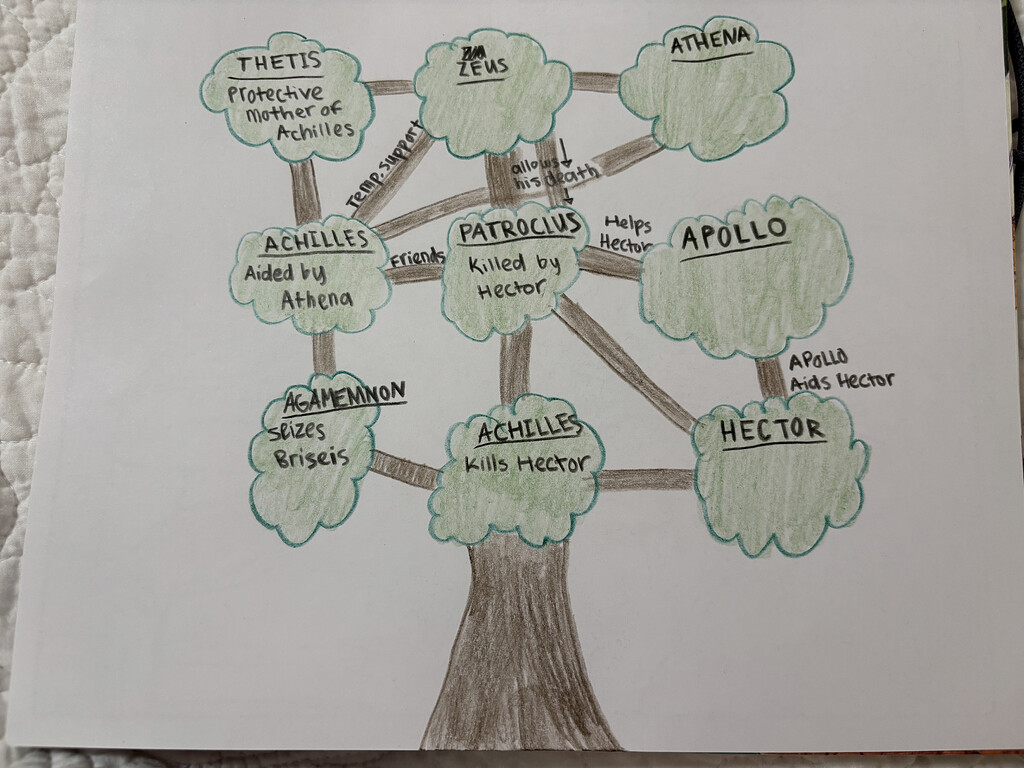 THETIS
Protective
Mother of
Achilles
ZEUS
ATHENA
Temp. support
allows
his death
ACHILLES
Aided by
Athena
Friends
PATROCLUS
Killed by
Hector
Helps
Hector
APOLLO
APOLLO
Aids Hector
AGAMEMNON
seizes
Briseis
ACHILLES
Kills Hector
HECTOR